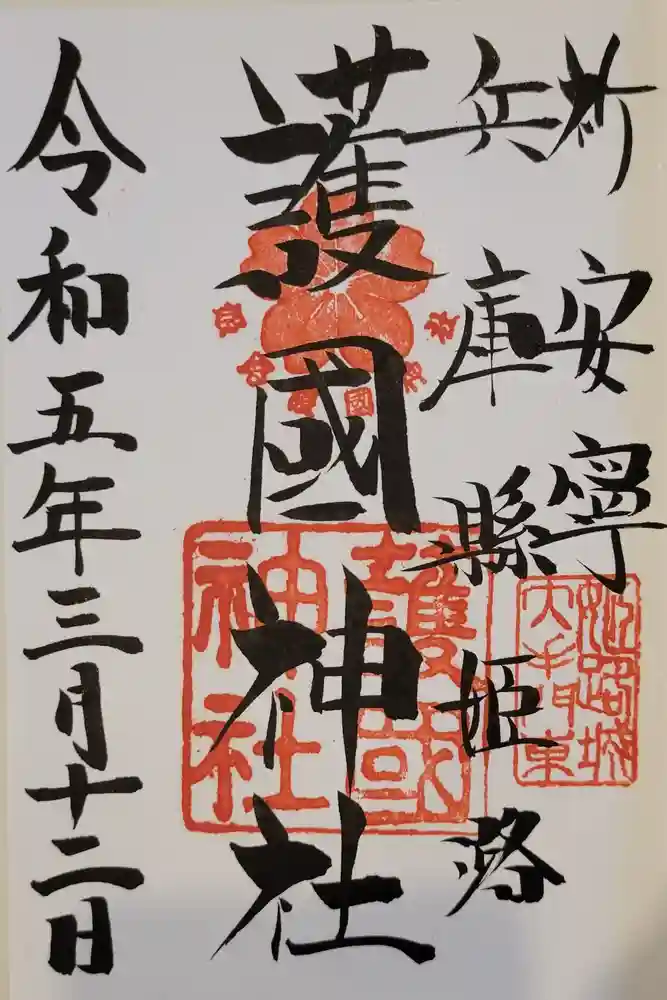 祈安寧
兵庫縣姫路
護國神社
令和五年三月十二日
姫路城
大手門東
護國
神社